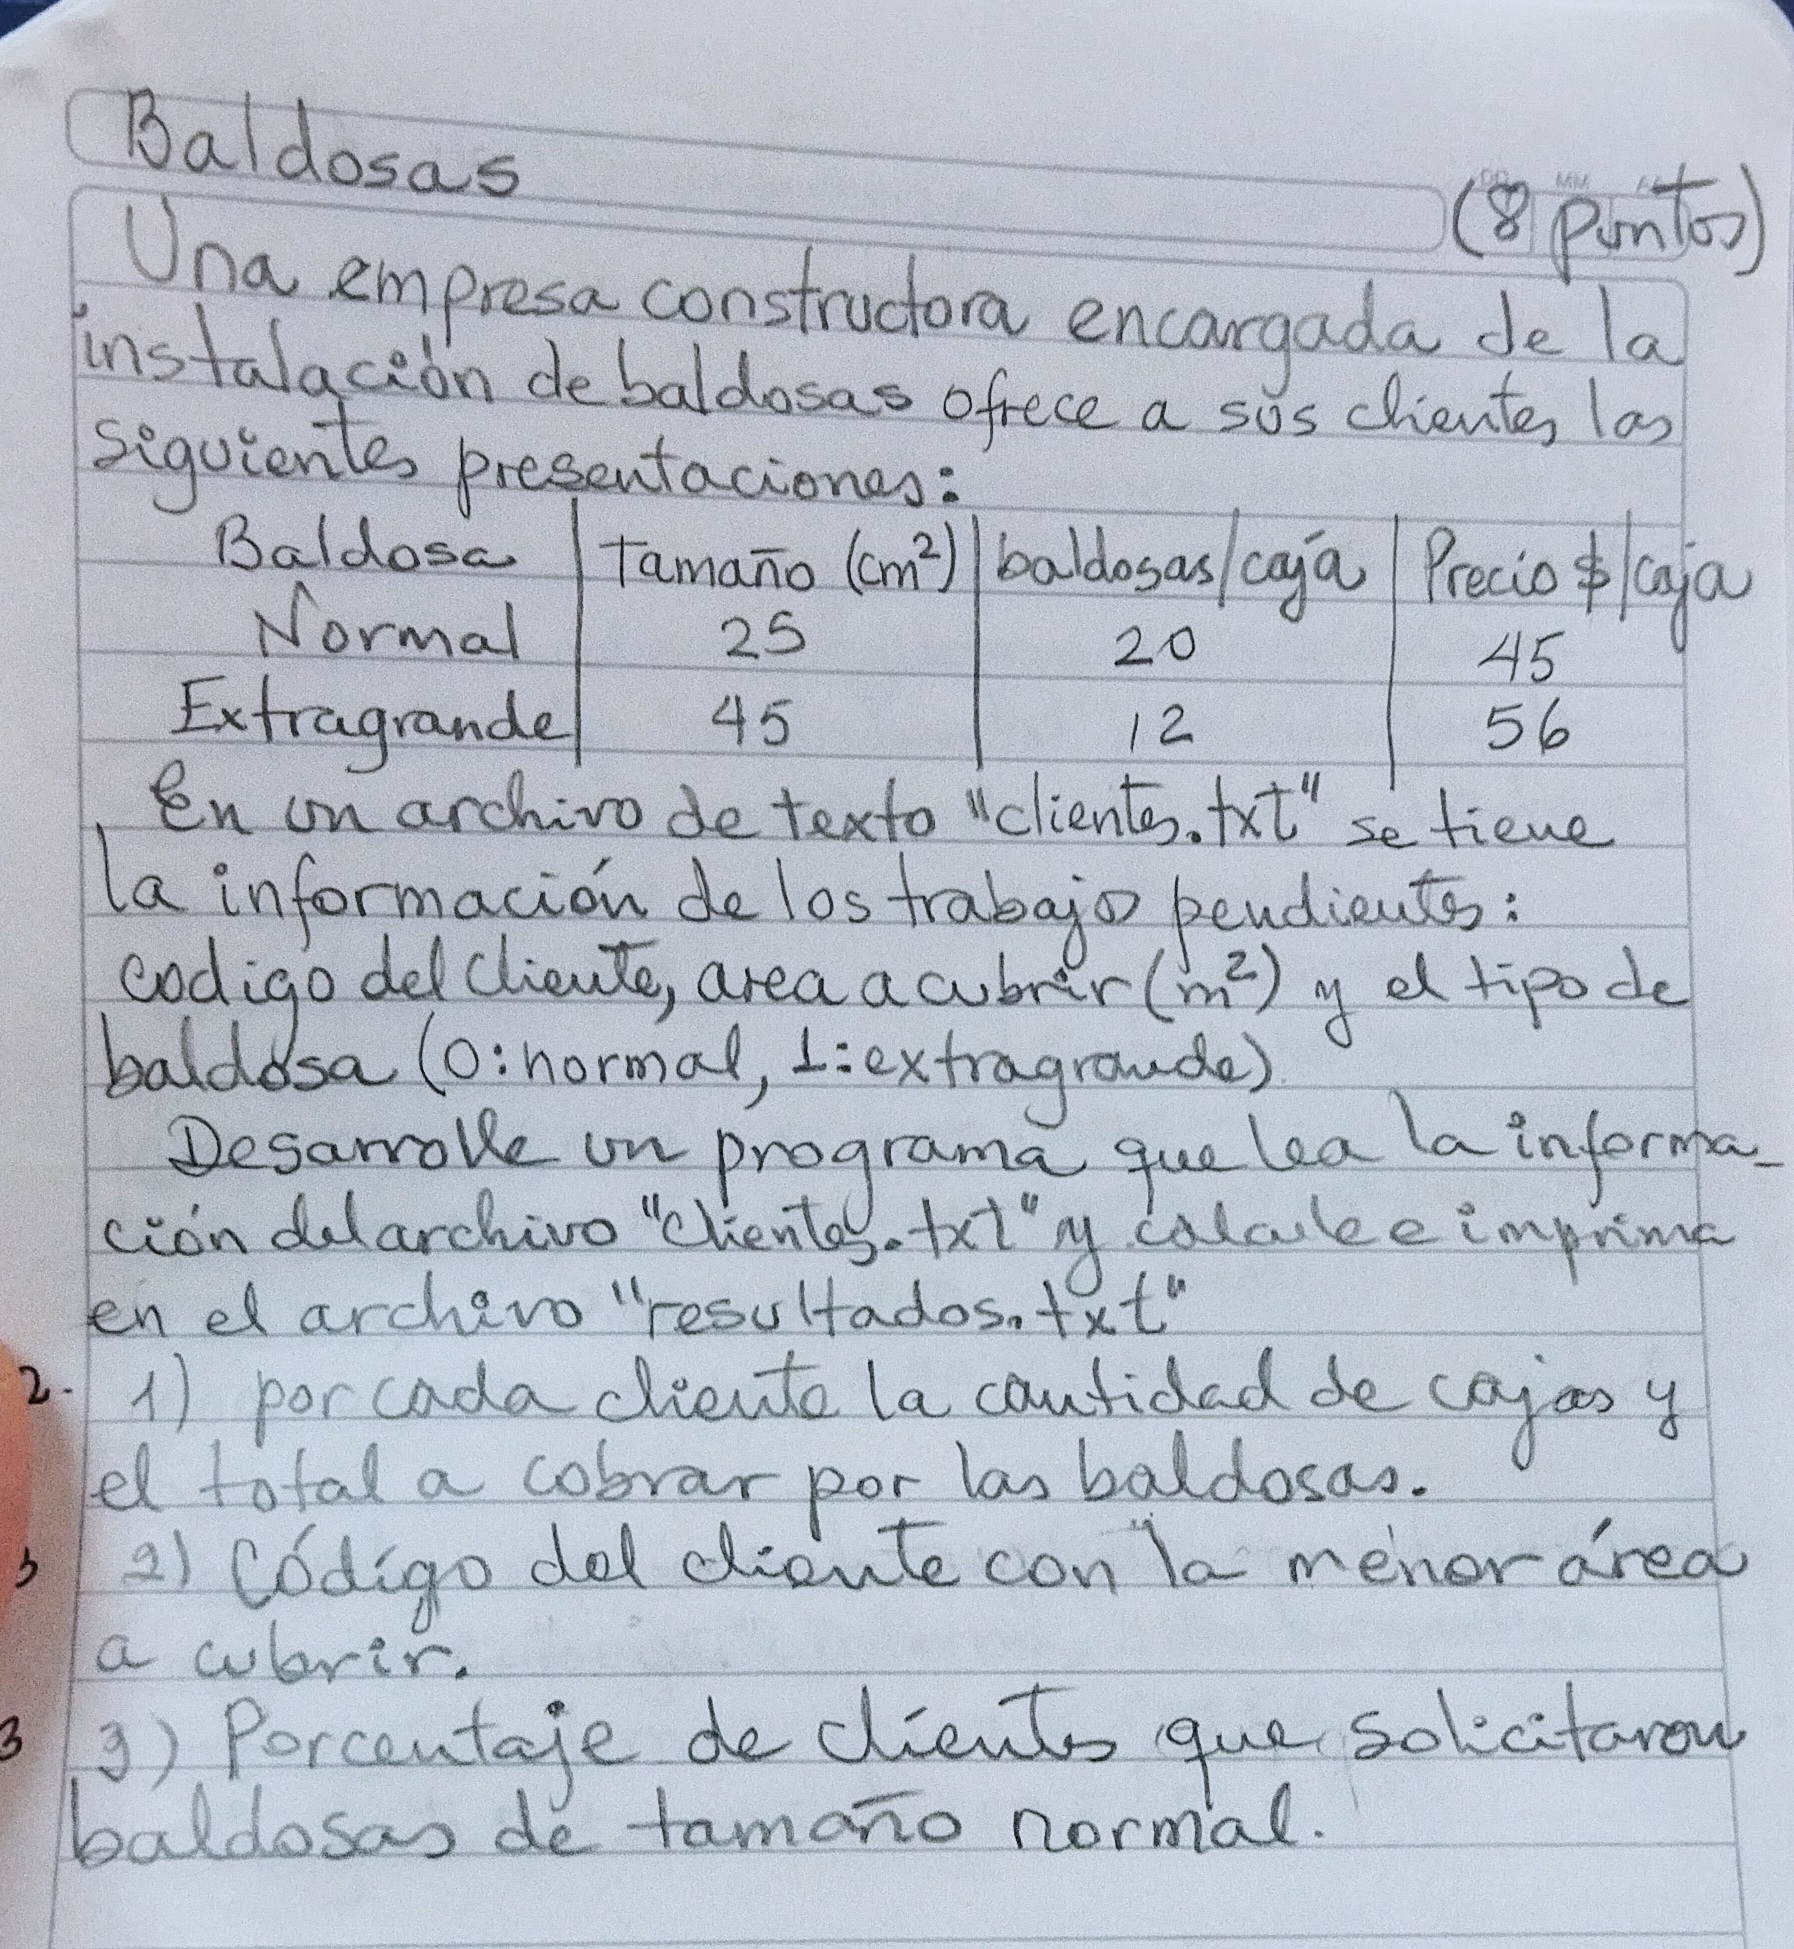 Baldosas
(8 puntos)
Una empresa constructora encargada de la
instalación de baldosas ofrece a sus clientes las
siguientes presentaciones:
Baldosa | Tamaño (cm²) | baldosas/caja | Precio $/caja
Normal | 25 | 20 | 45
Extragrande | 45 | 12 | 56
En un archivo de texto "clientes.txt" se tiene
la información de los trabajos pendientes:
codigo del cliente, area a cubrir (m²) y el tipo de
baldosa (0:normal, 1:extragrande)
Desarrolle un programa que lea la informa-
ción del archivo "clientes.txt" y calcule e imprima
en el archivo "resultados.txt"
2. 1) por cada cliente la cantidad de cajas y
el total a cobrar por las baldosas.
2) Código del cliente con la menor área
a cubrir.
3 3) Porcentaje de clientes que solicitaron
baldosas de tamaño normal.